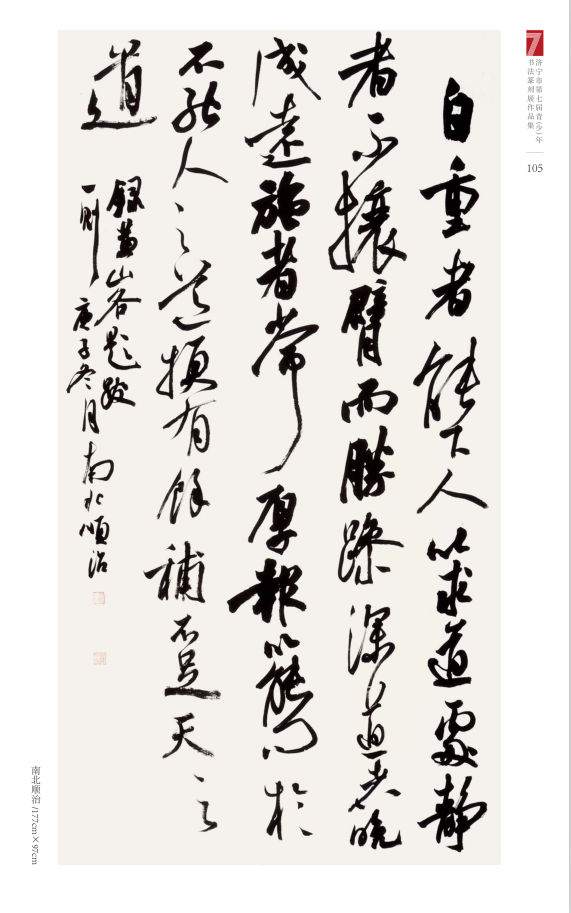 7
济宁市第七届青(少)年
书法篆刻展作品集
105
自重者能下人以求道處靜
者不攘臂而勝躁深道者晚
成遠施者常厚報以能問於
不能人之道損有餘補不足天之
道
錄黄山谷題跋
一則
庚子冬月南北順治
南北顺治 /177cm×97cm